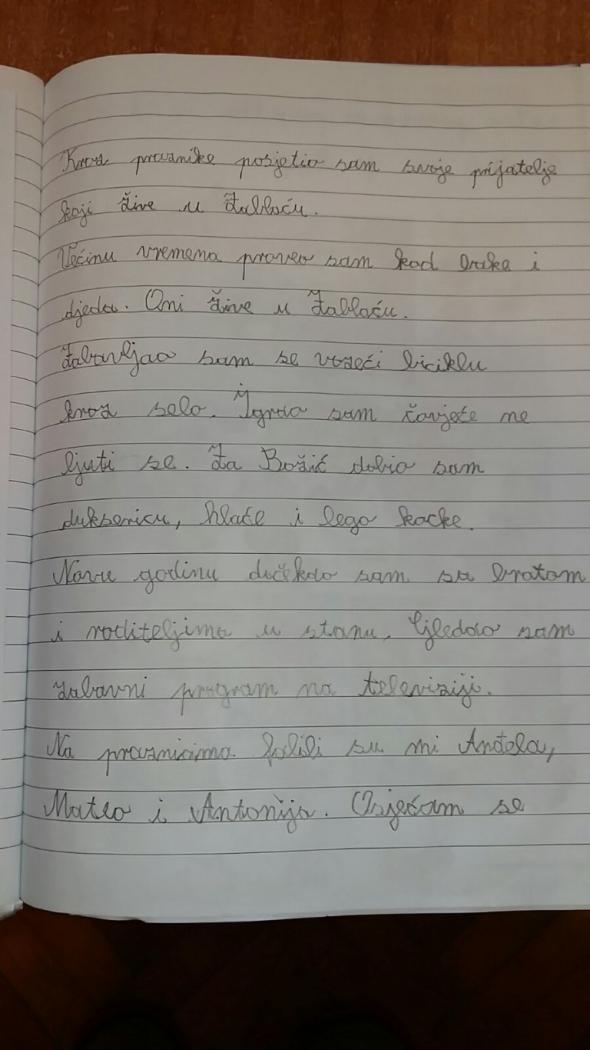 Kroz praznike posjetio sam svoje prijatelje
koji žive u Žablaću.
Većinu vremena proveo sam kod bake i
djeda. Oni žive u Žablaću.
Zabavljao sam se vozeći biciklu
kroz selo. Igrao sam čovječe ne
ljuti se. Za Božić dobio sam
duksericu, hlače i lego kocke.
Novu godinu dočekao sam sa bratom
i roditeljima u stanu. Gledao sam
zabavni program na televiziji.
Na praznicima falili su mi Anđela,
Mateo i Antonija. Osjećam se